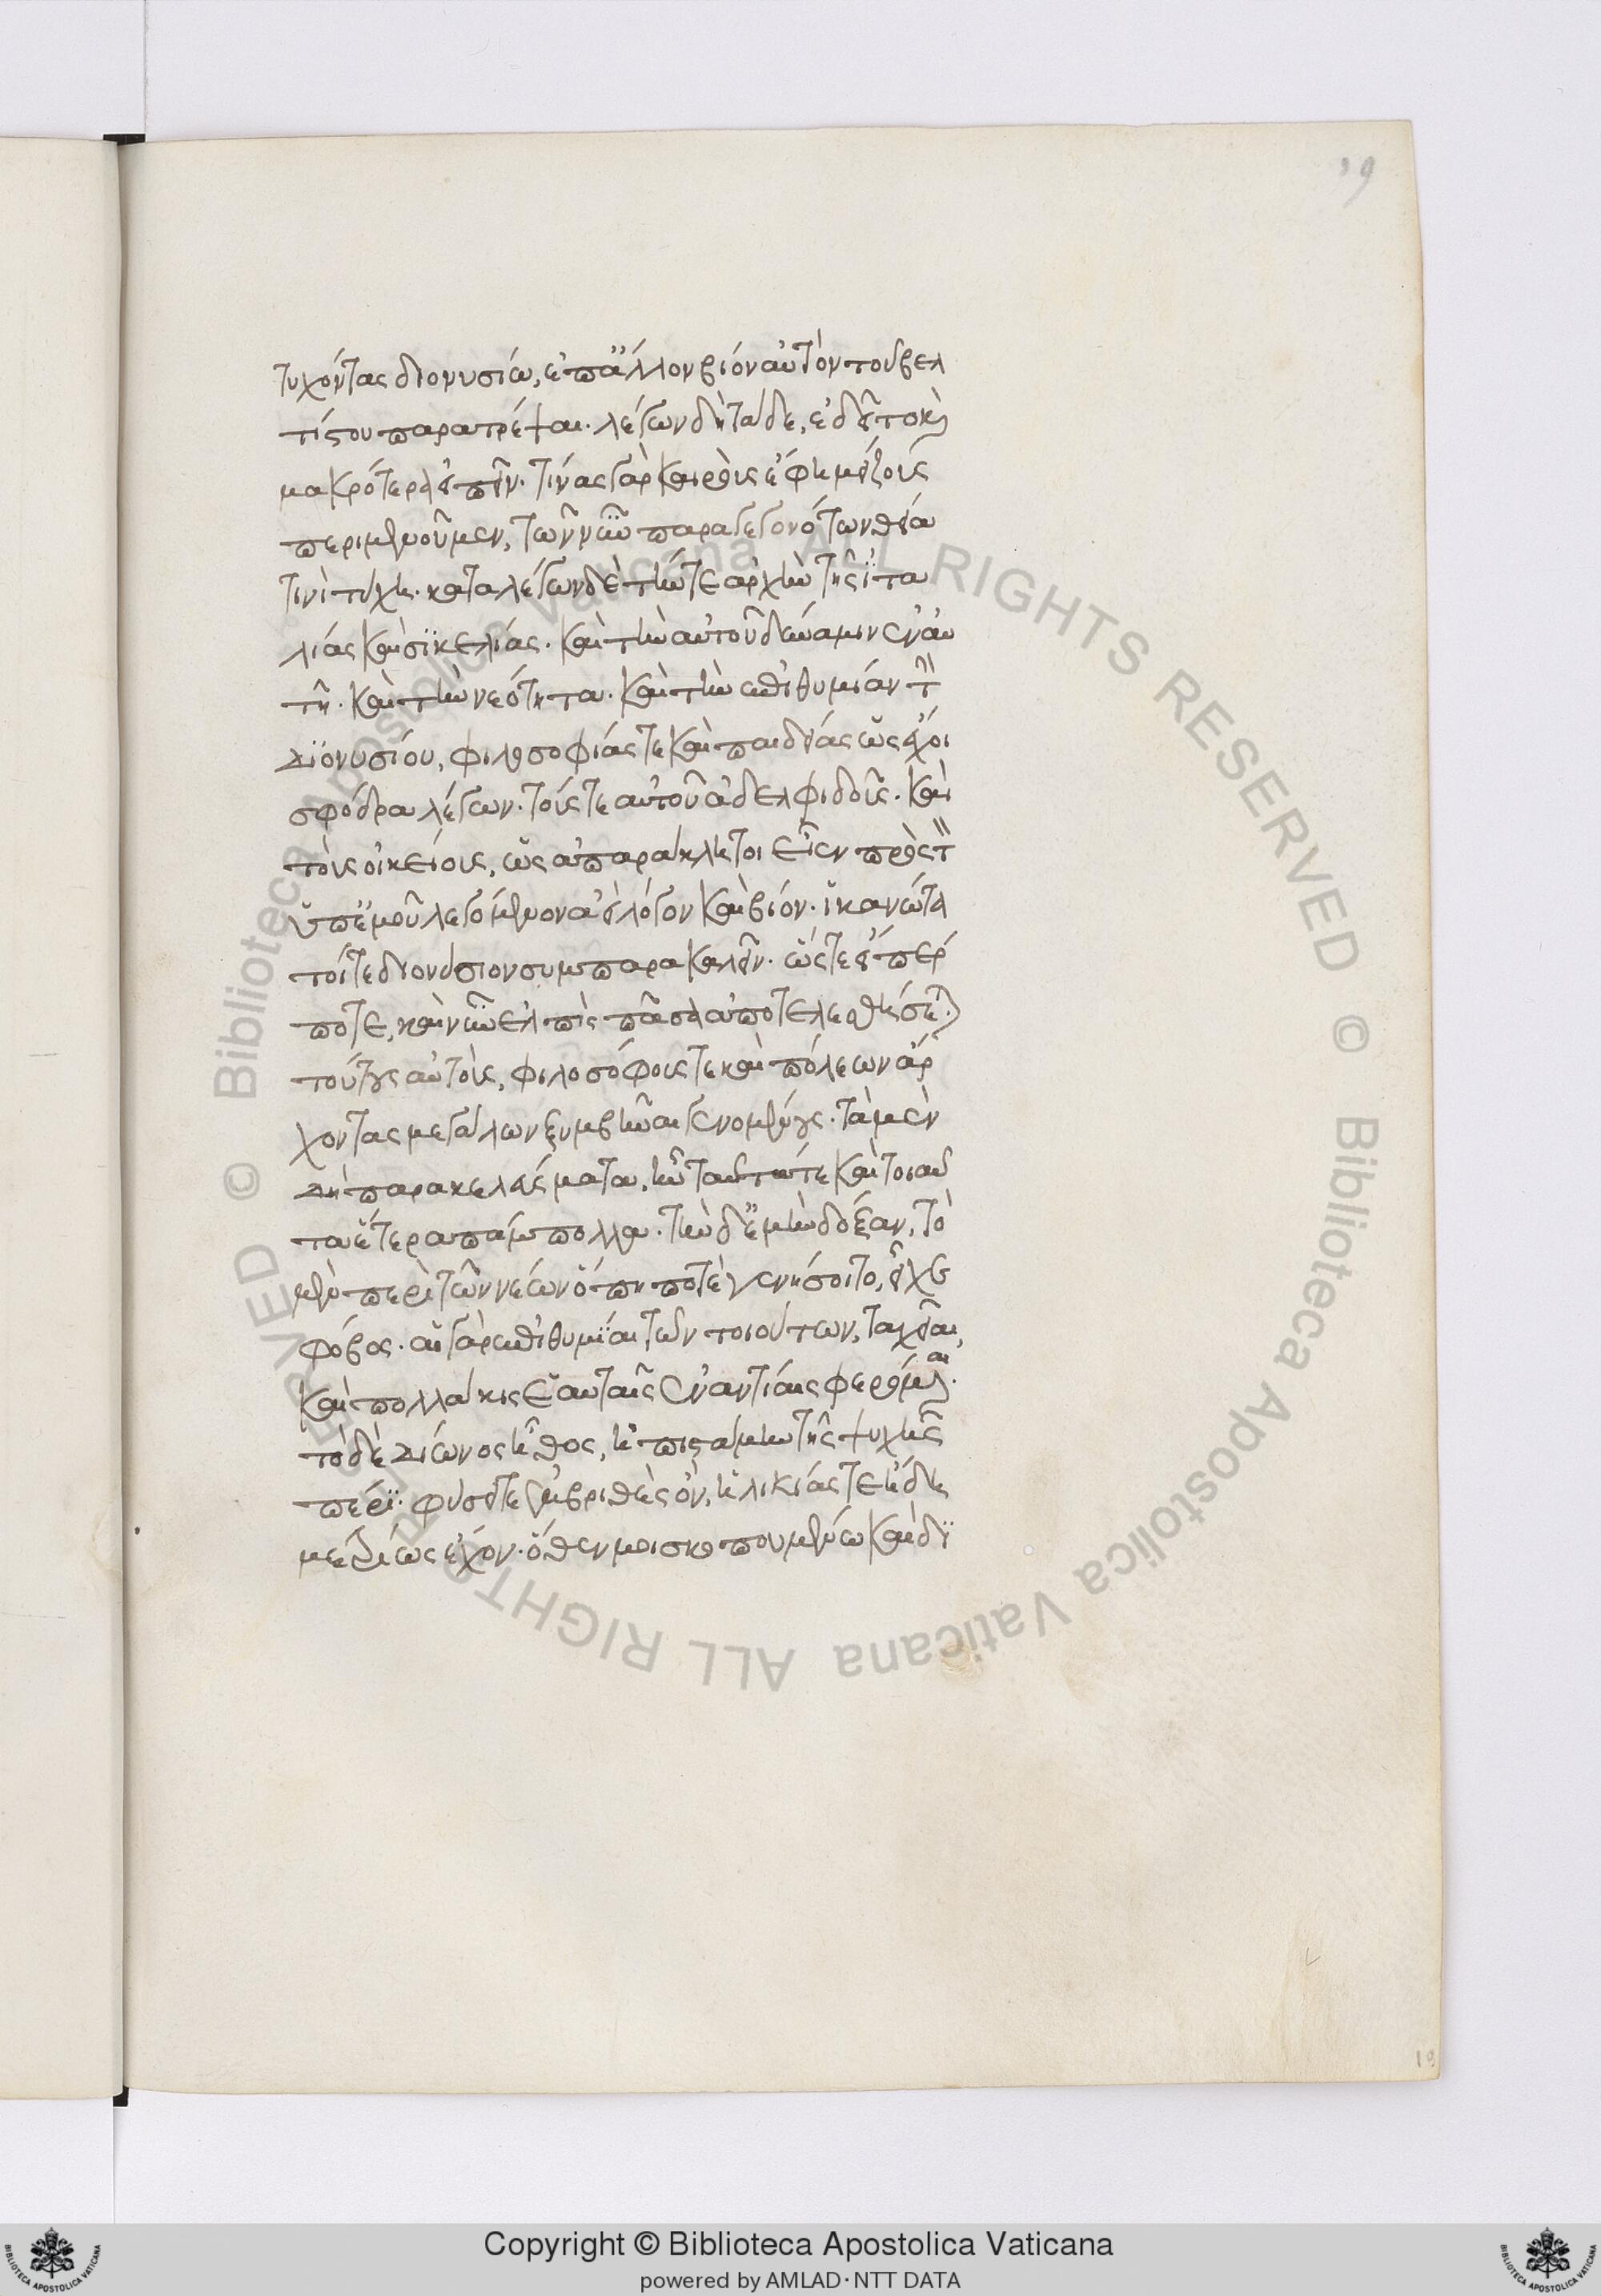 19
τυχόντας διονυσίω, ἐπ' ἄλλον βίον αὐτὸν τοῦ βελ
τίστου παρατρέψαι. λέγων δὴ τάδε, ἐδεῖτο καὶ
μακρότερα εἰπεῖν. τίνας γὰρ καιροὺς ἔφη μείζους
περιμενοῦμεν, τῶν νῦν παραγεγονότων θεία
τινὶ τύχη. καταλέγων δὲ τήν τε ἀρχὴν τῆς ἰτα
λίας καὶ σικελίας. καὶ τὴν αὐτοῦ δύναμιν ἐν αὐ
τῆ. καὶ τὴν νεότητα. καὶ τὴν ἐπιθυμίαν τὴν
διονυσίου, φιλοσοφίας τε καὶ παιδείας ὡς ἔχοι
σφόδρα λέγων. τούς τε αὐτοῦ ἀδελφιδοῦς. καὶ
τοὺς οἰκείους, ὡς εὐπαράκλητοι εἶεν πρὸς τὸν
ὑπ' ἐμοῦ λεγόμενον ἀεὶ λόγον καὶ βίον. ἱκανώτα
τοί τε διονύσιον συμπαρακαλεῖν. ὥστε εἴπερ
ποτε, καὶ νῦν ἐλπὶς πᾶσα ἀποτελεσθήσεται
τοὺς αὐτοὺς, φιλοσόφους τε καὶ πόλεων ἄρ
χοντας μεγάλων ξυμβῆναι γενομένους. τὰ μὲν
δὴ παρακελεύματα, ἦν ταῦτά τε καὶ τοιαῦ
τα ἕτερα πάμπολλα. τὴν δ' ἐμὴν δόξαν, τὸ
μὲν περὶ τῶν νέων ὅπη ποτὲ γενήσοιτο, εἶχε
φόβος. αἱ γὰρ ἐπιθυμίαι τῶν τοιούτων, ταχεῖαι,
καὶ πολλάκις ἑαυταῖς ἐναντίαι φερόμεναι.
τὸ δὲ δίωνος ἦθος, ἠπιστάμην τῆς ψυχῆς
πέρι. φύσει τε ἐμβριθὲς ὂν, ἡλικίας τε ἤδη
μετρίως ἔχον. ὅθεν μοι σκοπουμένω καὶ δι
19
Copyright © Biblioteca Apostolica Vaticana
powered by AMLAD·NTT DATA